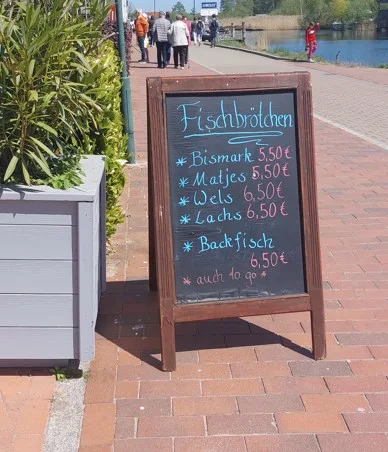 Fischbrötchen
* Bismark 5,50€
* Matjes 5,50€
* Wels 6,50€
* Lachs 6,50€
* Backfisch
6,50€
* auch to go *